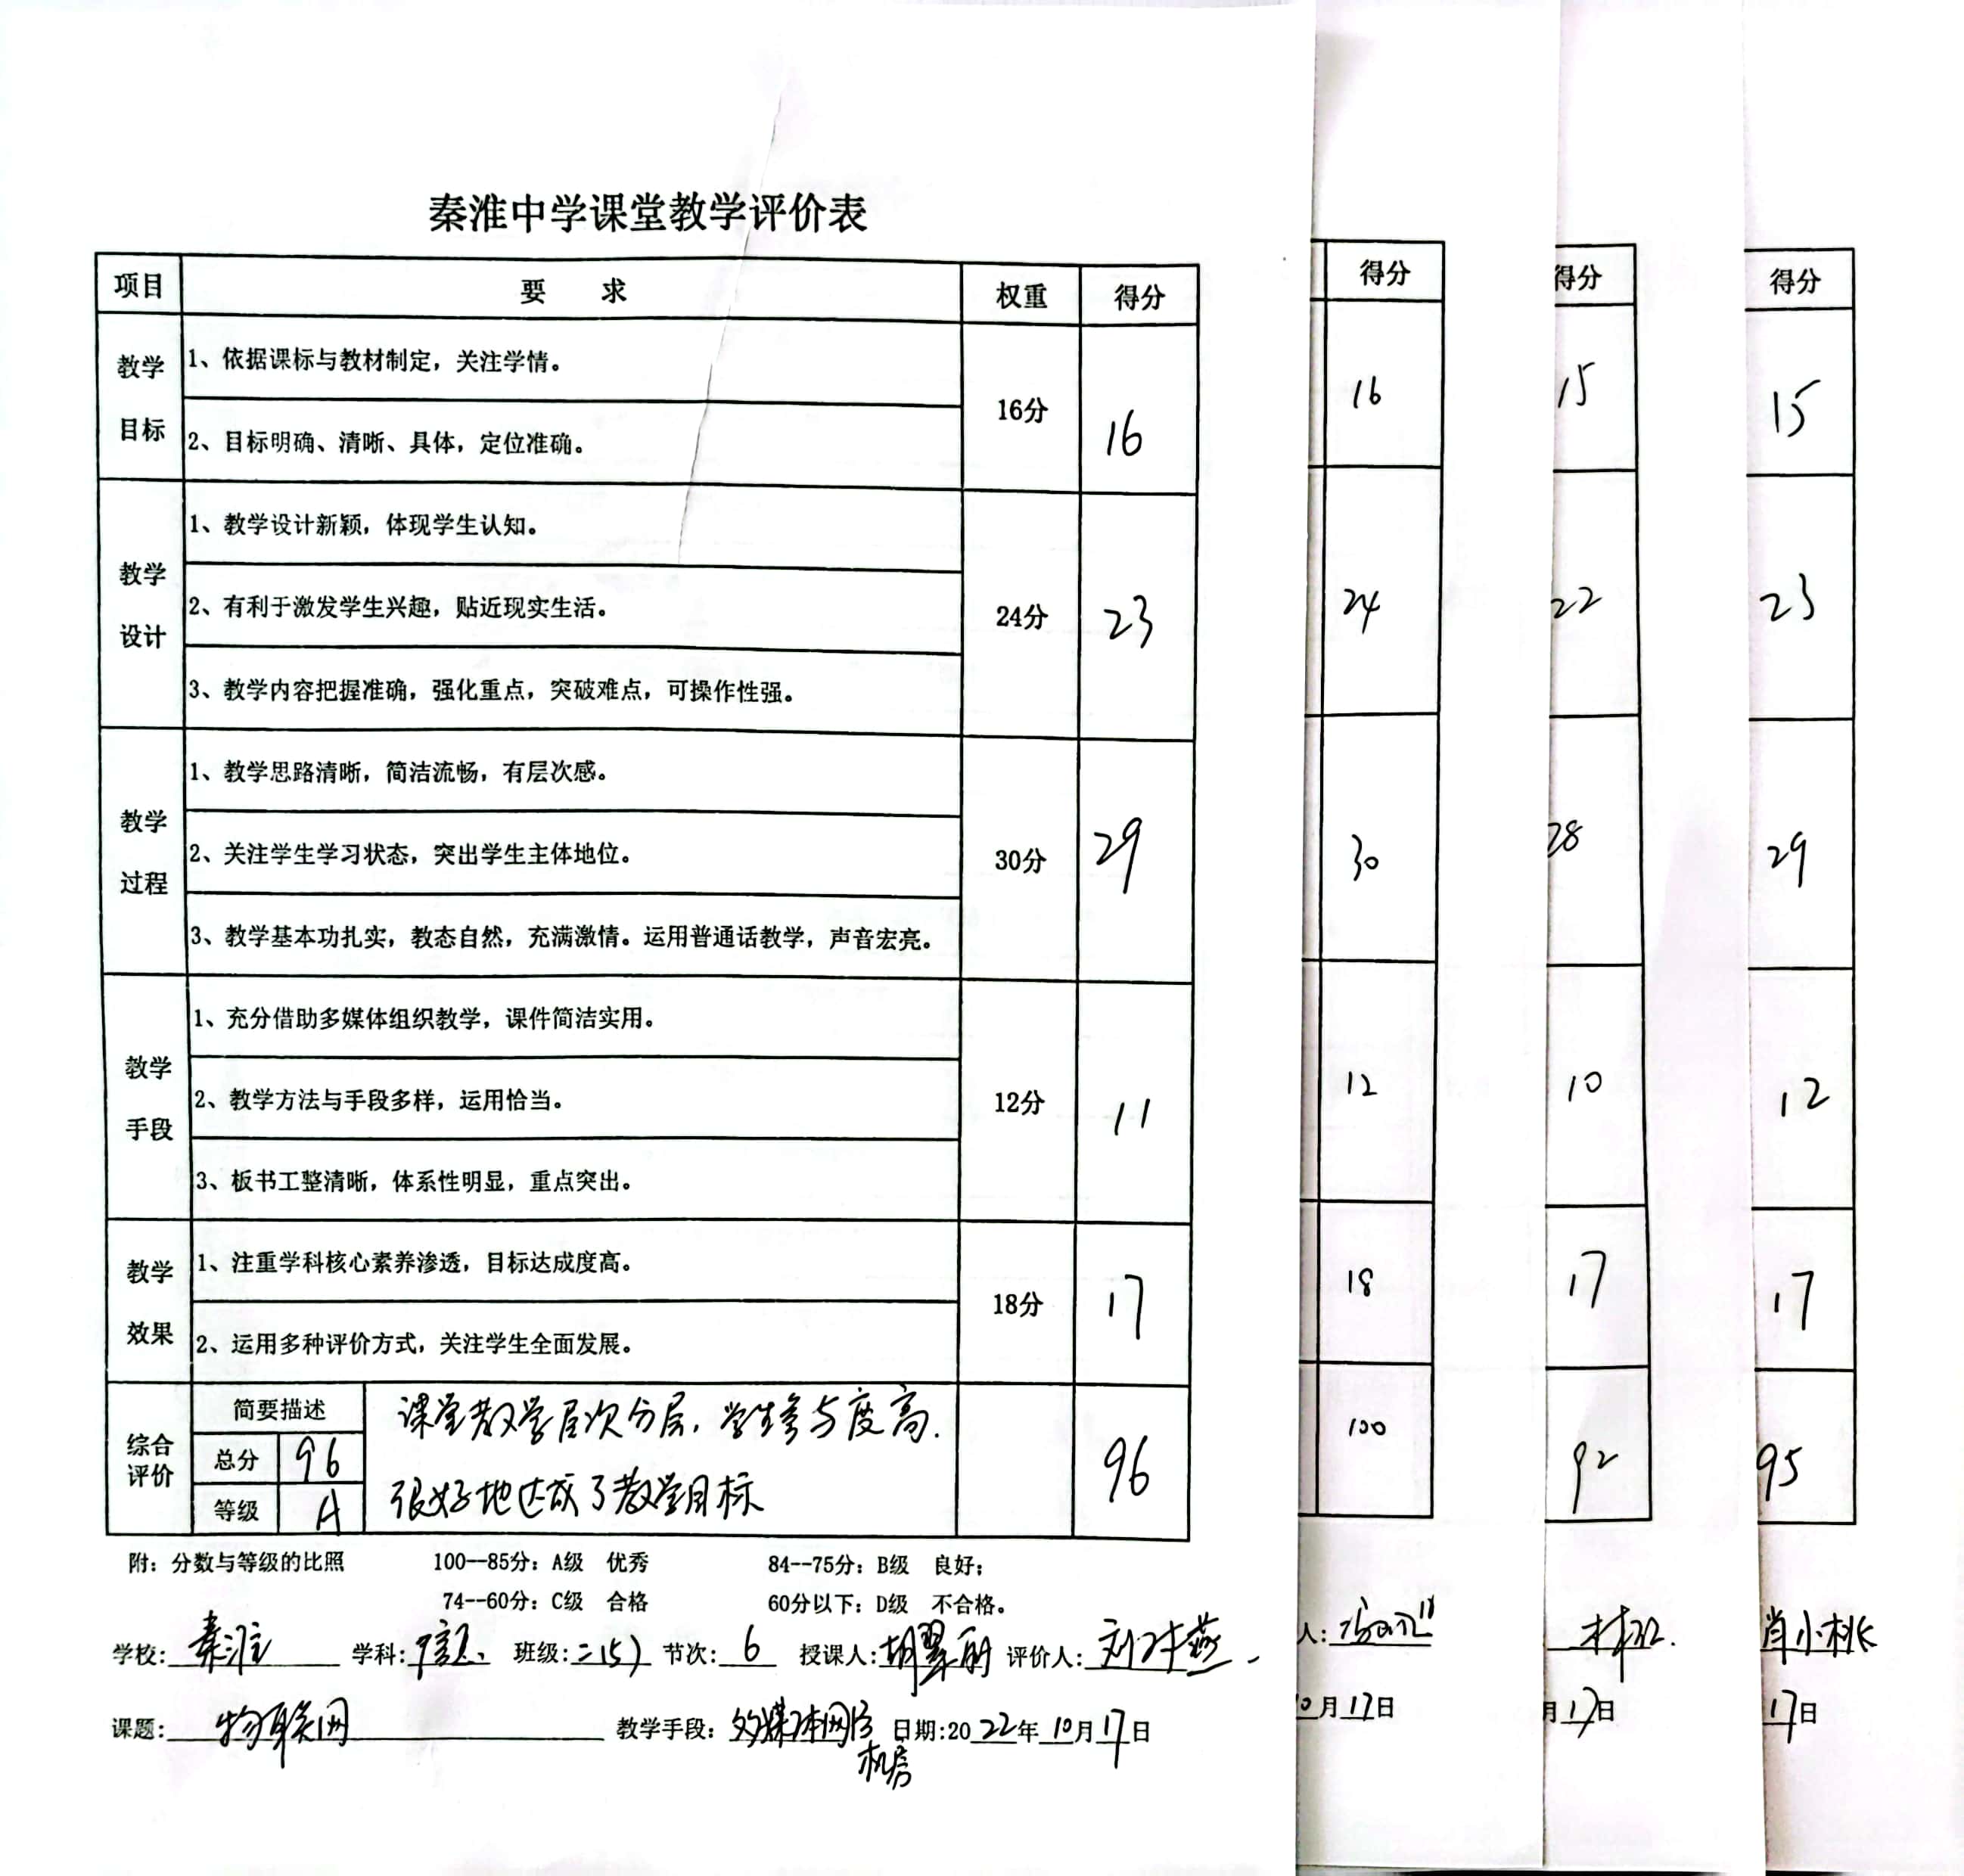 秦淮中学课堂教学评价表
项目 要 求 权重 得分
教学目标
1、依据课标与教材制定，关注学情。
2、目标明确、清晰、具体，定位准确。
16分 16
教学设计
1、教学设计新颖，体现学生认知。
2、有利于激发学生兴趣，贴近现实生活。
3、教学内容把握准确，强化重点，突破难点，可操作性强。
24分 23
教学过程
1、教学思路清晰，简洁流畅，有层次感。
2、关注学生学习状态，突出学生主体地位。
3、教学基本功扎实，教态自然，充满激情。运用普通话教学，声音宏亮。
30分 29
教学手段
1、充分借助多媒体组织教学，课件简洁实用。
2、教学方法与手段多样，运用恰当。
3、板书工整清晰，体系性明显，重点突出。
12分 11
教学效果
1、注重学科核心素养渗透，目标达成度高。
2、运用多种评价方式，关注学生全面发展。
18分 17
综合评价
简要描述
课堂教学层次分层，学生参与度高.
很好地达成了教学目标
总分 96
等级 A
96
附：分数与等级的比照 100--85分：A级 优秀 84--75分：B级 良好；
74--60分：C级 合格 60分以下：D级 不合格。
学校: 秦淮 学科: 信息 班级: 二(5) 节次: 6 授课人: 胡翠丽 评价人:
课题: 物联网 教学手段: 多媒体网络机房 日期:2022年10月17日
得分
16
24
30
12
18
100
人:
10月17日
得分
15
22
28
10
17
92
月17日
得分
15
23
29
12
17
95
肖小桃
17日